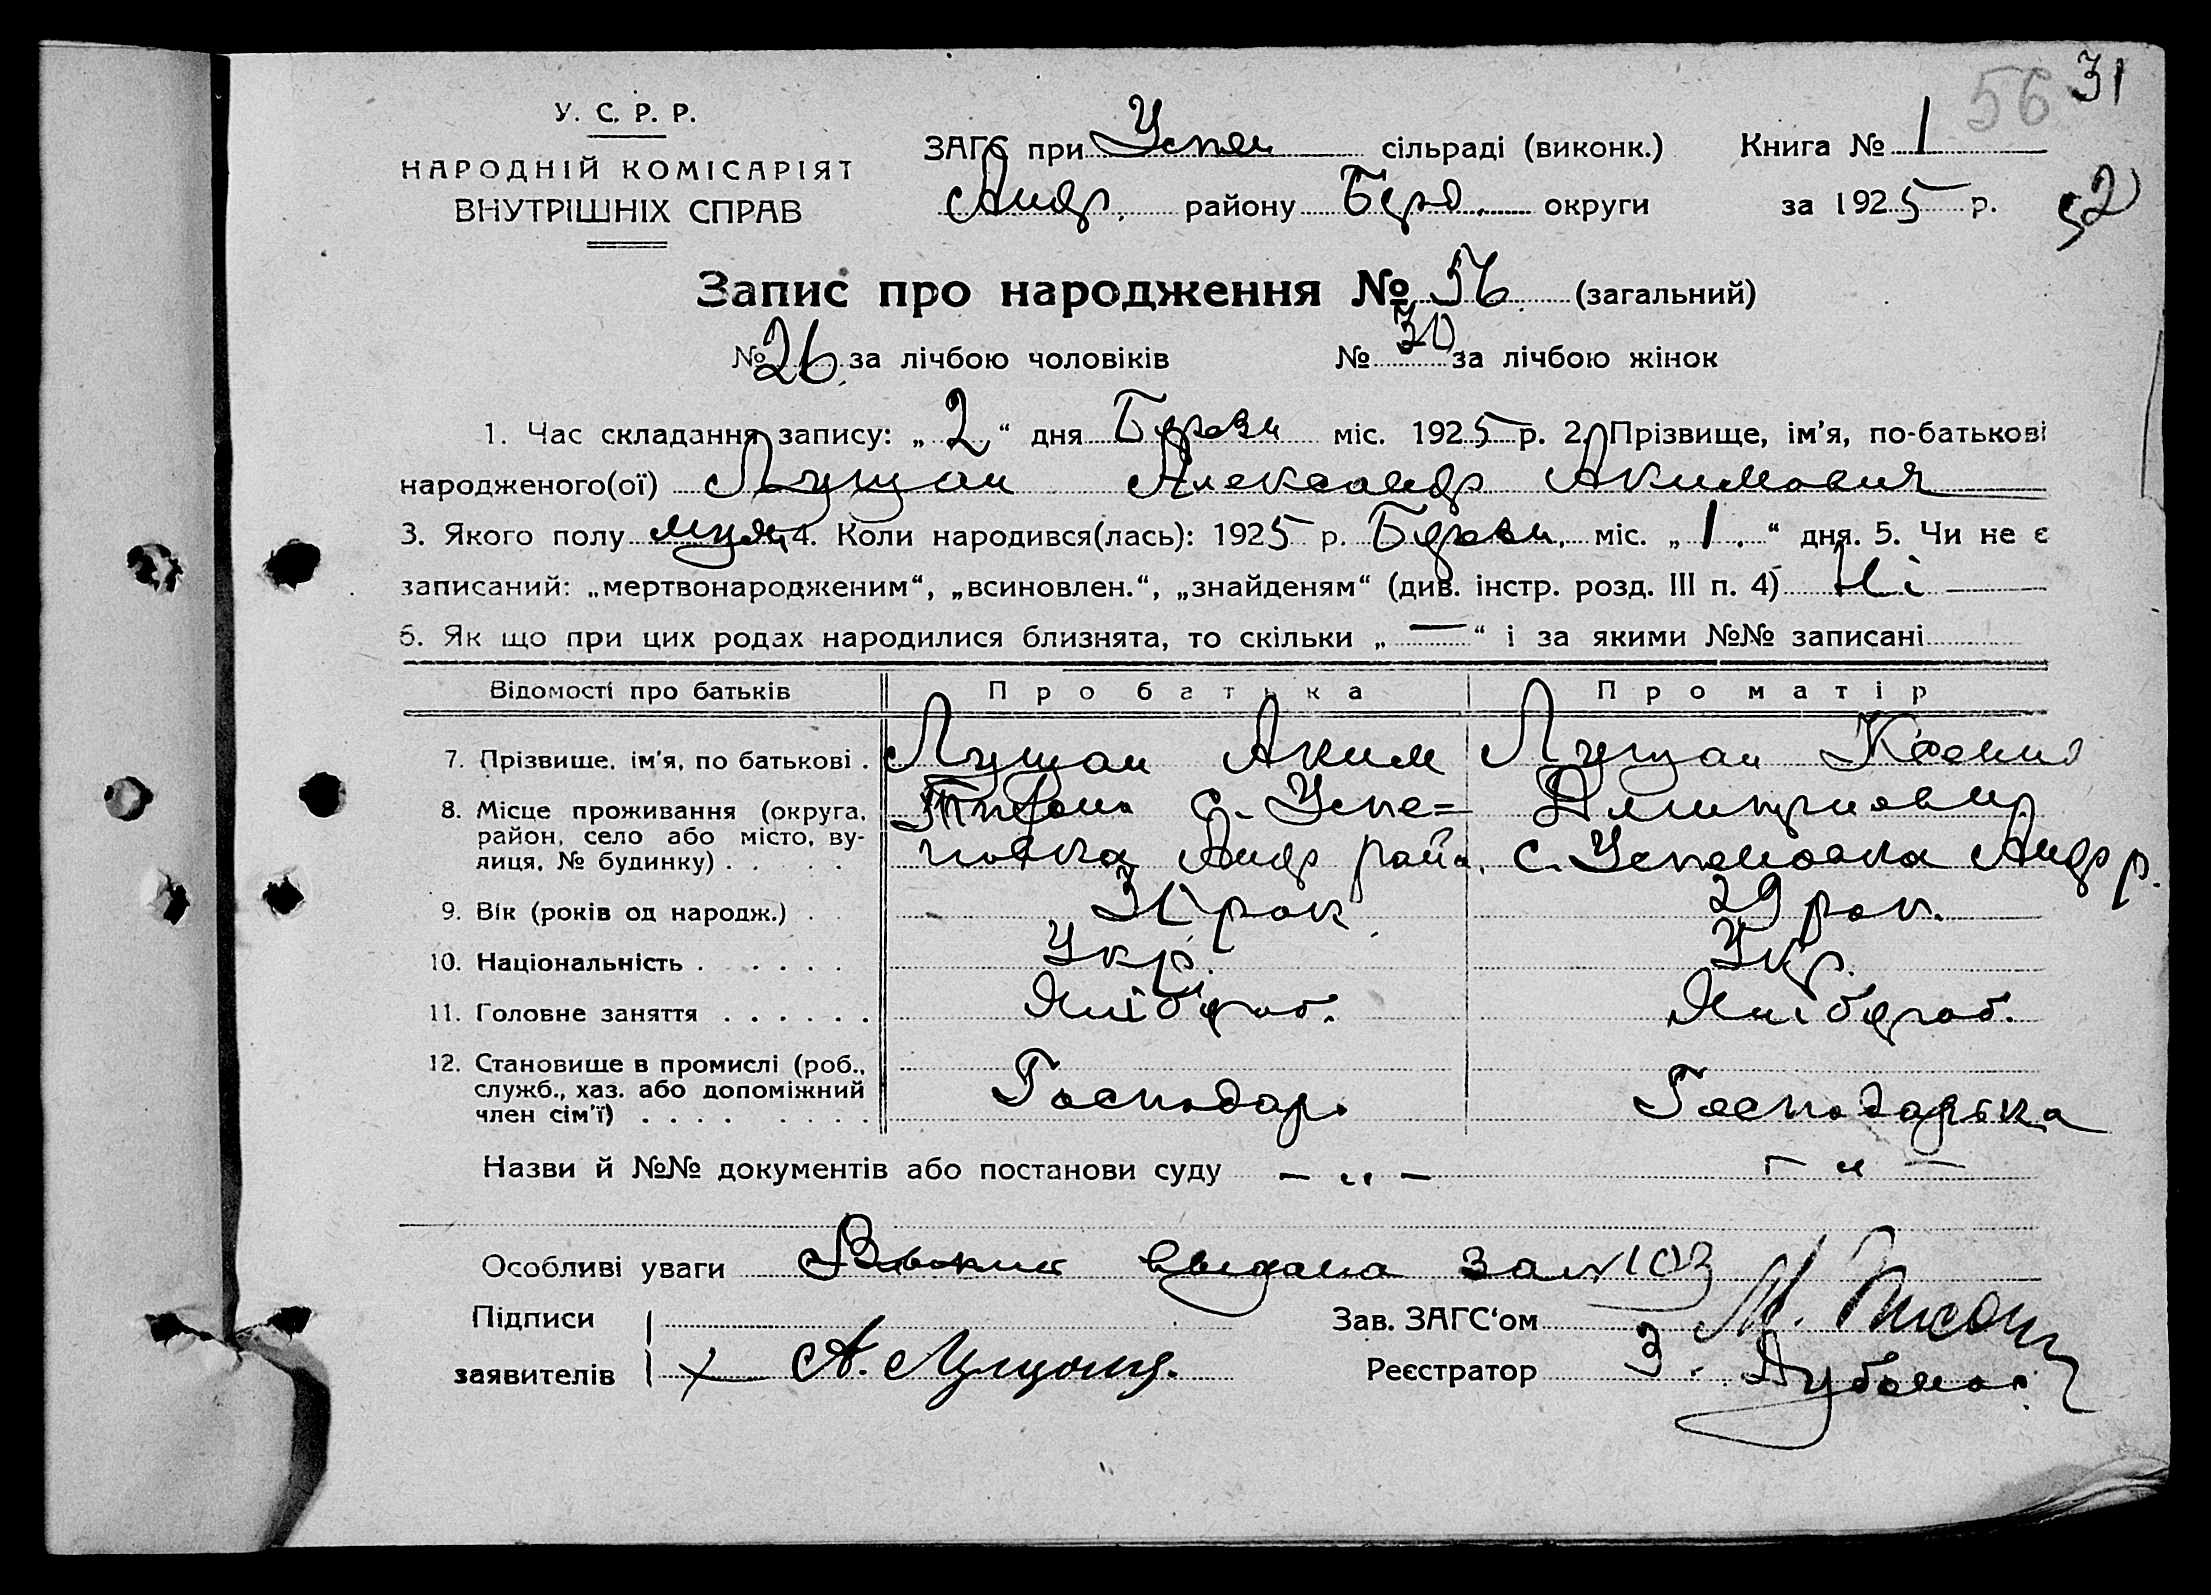 56 31
У. С. Р. Р.
НАРОДНІЙ КОМІСАРІЯТ
ВНУТРІШНІХ СПРАВ
ЗАГС при Успен сільраді (виконк.) Книга № 1
Андр. району Берд. округи за 1925 р. 52
Запис про народження № 56 (загальний)
№ 26 за лічбою чоловіків № 30 за лічбою жінок
1. Час складання запису: „2“ дня міс. 1925 р. 2. Прізвище, ім'я, по-батькові
народженого(ої) Лущан Александр Акимович
3. Якого полу муж. 4. Коли народився(лась): 1925 р. міс. „1.“ дня. 5. Чи не є
записаний: „мертвонародженим“, „всиновлен.“, „знайденям“ (див. інстр. розд. III п. 4) Ні —
6. Як що при цих родах народилися близнята, то скільки „—“ і за якими №№ записані
Відомості про батьків Про батька Про матір
7. Прізвище, ім'я, по батькові . Лущан Аким Лущан Ксения
8. Місце проживання (округа, район, село або місто, вулиця, № будинку) . . . . с. Успе=
новка Андр район. с. Успеновка Андр р.
9. Вік (років од народж.) . 31 рок 29 рок.
10. Національність . . . . . . Укр. Укр.
11. Головне заняття . . . . . . Хлібороб. Хлібороб.
12. Становище в промислі (роб., служб., хаз. або допоміжний член сім'ї) . . . . . . . . Господарь Господарька
Назви й №№ документів або постанови суду — „ — — „ —
Особливі уваги выдана за № 103
Підписи Зав. ЗАГС'ом М.
заявителів А. Лущань. Реєстратор З.